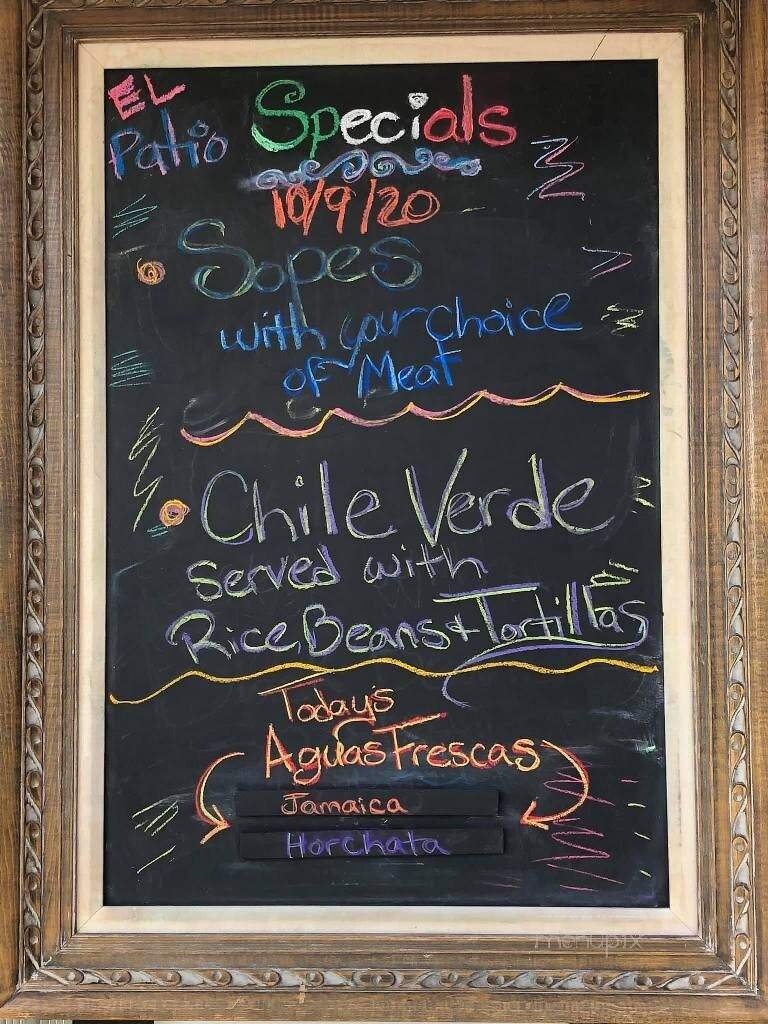 EL
Patio
Specials
10/9/20
Sopes
with your choice
of Meat
Chile Verde
served with
Rice, Beans & Tortillas
Today's
Aguas Frescas
Jamaica
Horchata
menupix